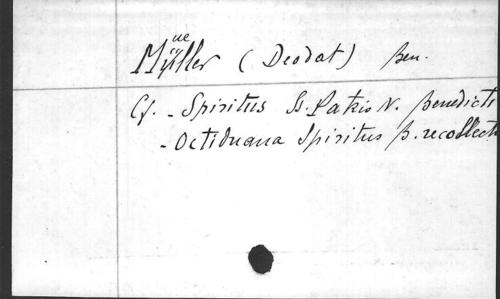 ue
Müller (Deodat) Ben.
Cf. - Spiritus SS. Patris N. Benedicti
- Octiduana Spiritus B. recollecti